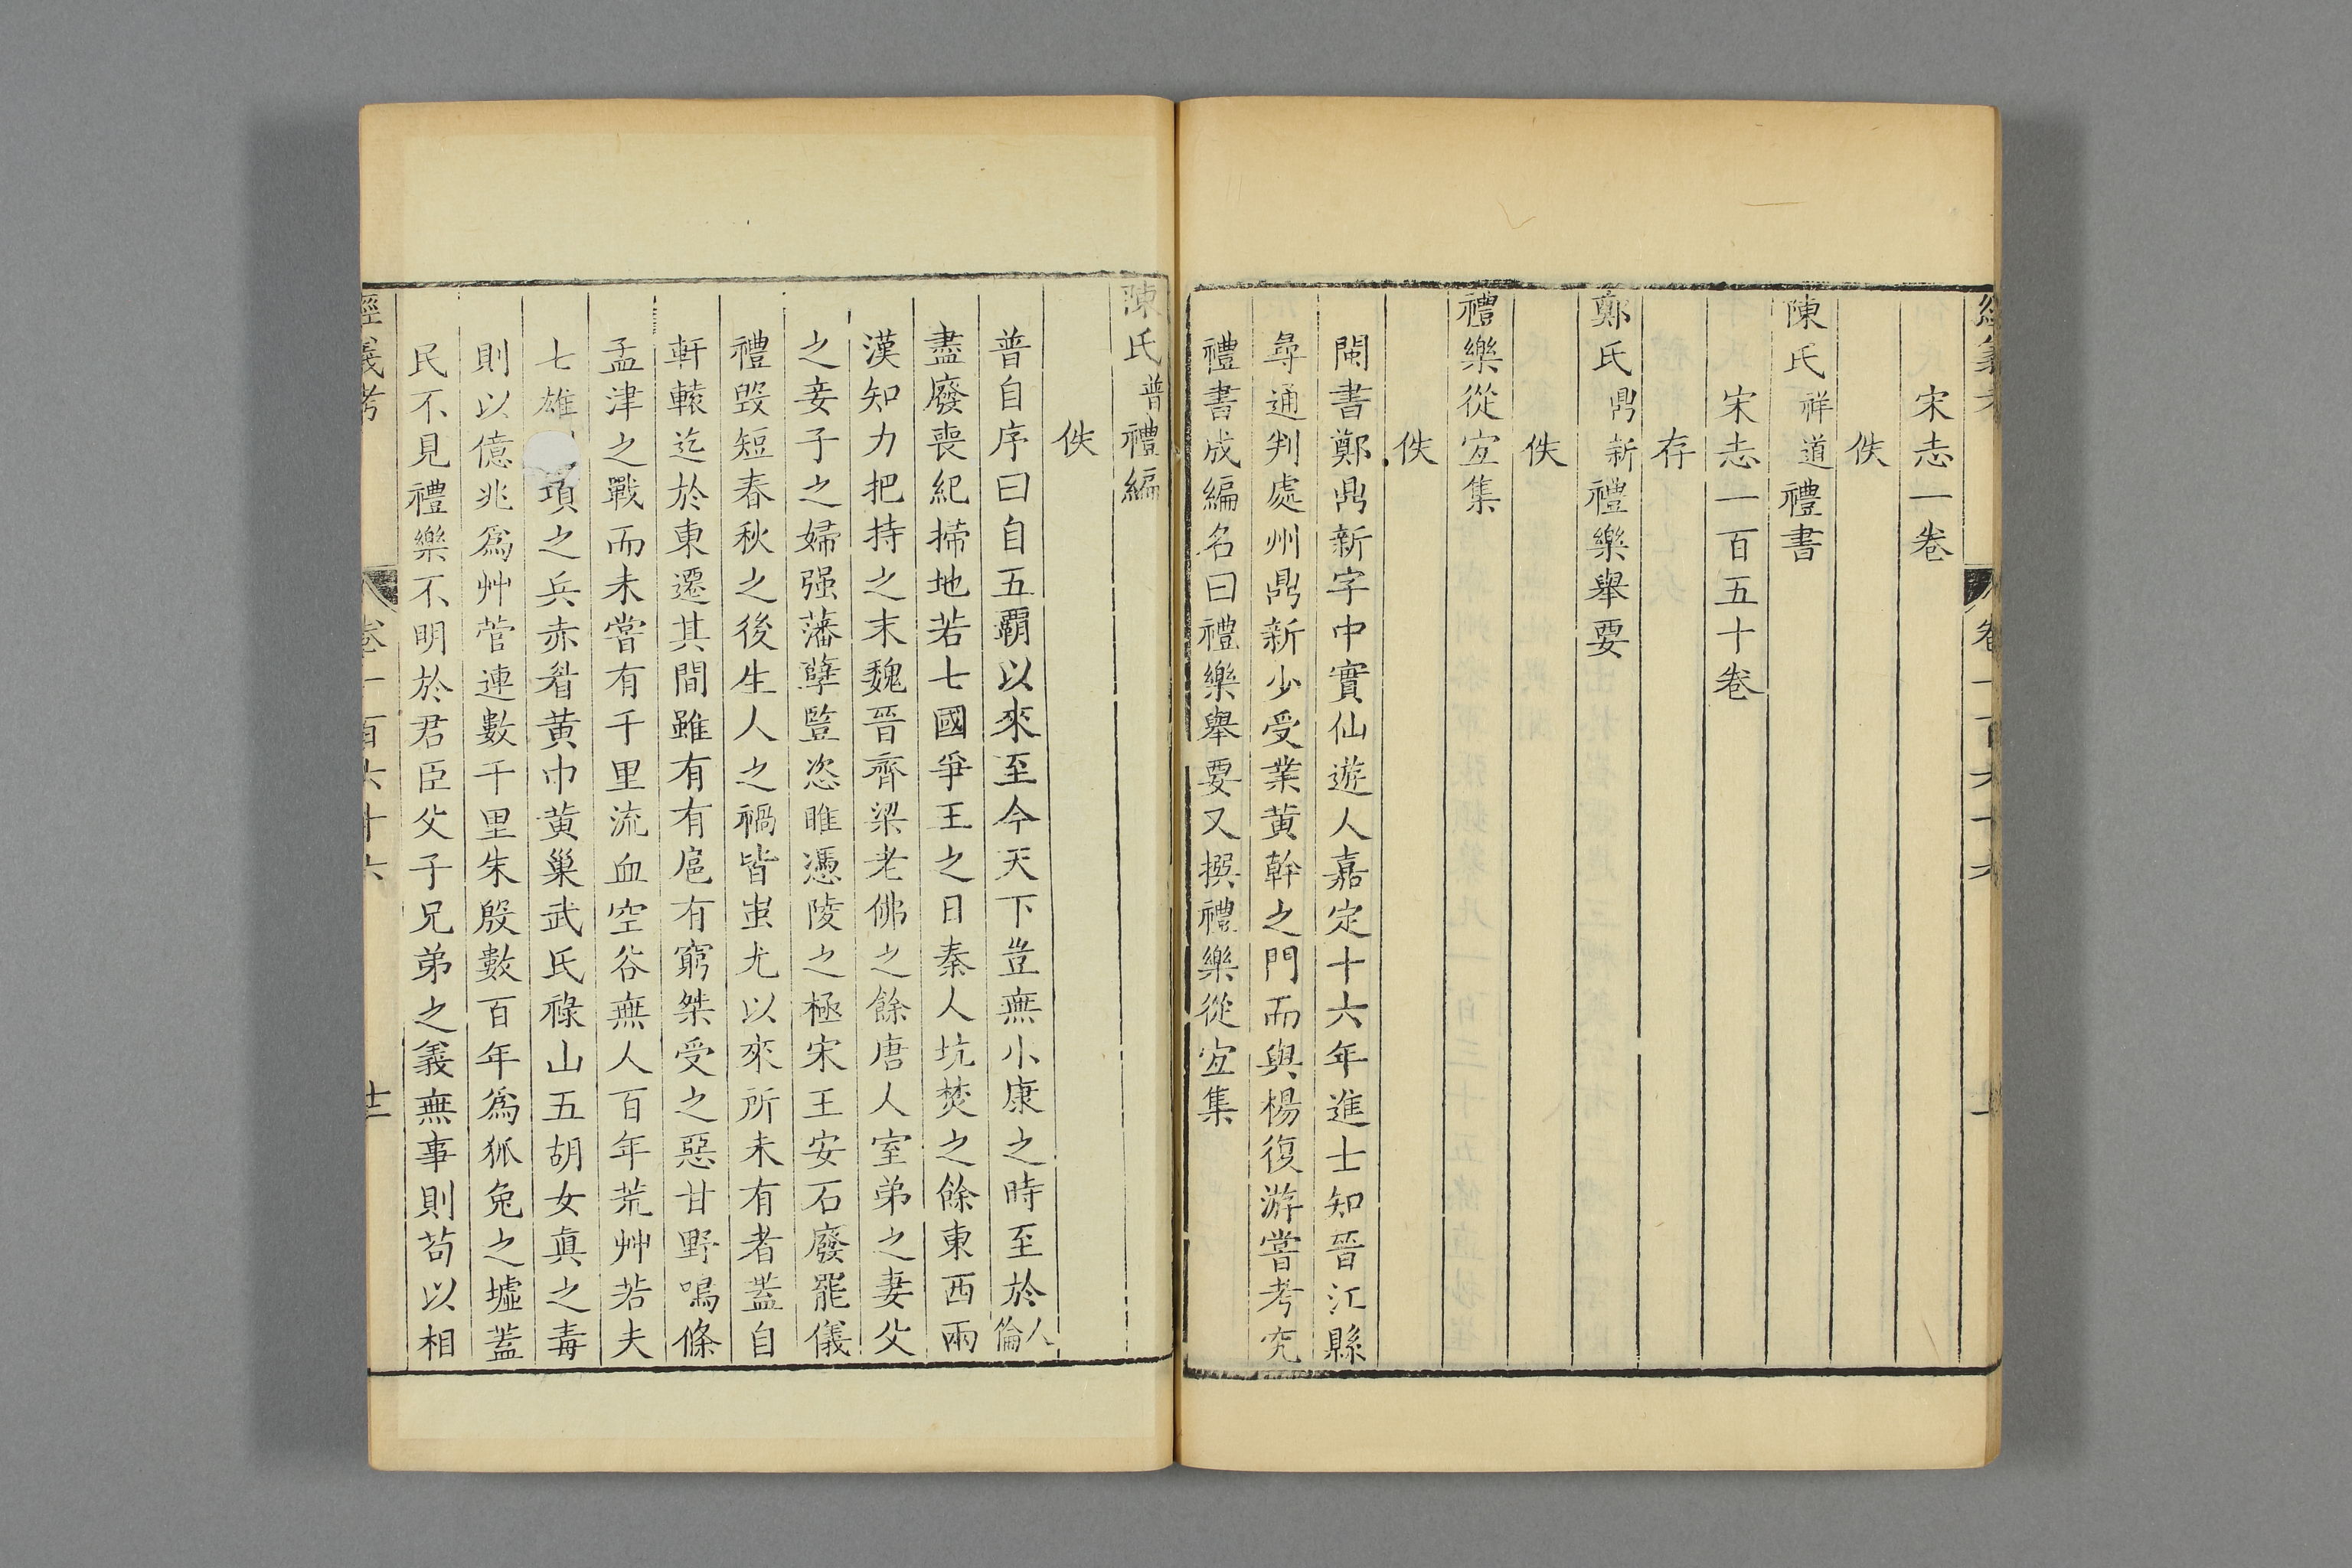 宋志一卷
佚
陳氏祥道禮書
宋志一百五十卷
存
鄭氏鼎新禮樂舉要
佚
禮樂從宜集
佚
閩書鄭鼎新字中實仙遊人嘉定十六年進士知晉江縣
尋通判處州鼎新少受業黄幹之門而與楊復游嘗考究
禮書成編名曰禮樂舉要又撰禮樂從宜集
陳氏普禮編
佚
普自序曰自五霸以來至今天下豈無小康之時至於人倫
盡廢喪紀掃地若七國爭王之日秦人坑焚之餘東西兩
漢知力把持之末魏晉齊梁老佛之餘唐人室弟之妻父
之妾子之婦强藩孽豎恣睢憑陵之極宋王安石廢罷儀
禮毁短春秋之後生人之禍皆蚩尤以來所未有者蓋自
軒轅迄於東遷其間雖有有扈有窮桀受之惡甘野鳴條
孟津之戰而未嘗有千里流血空谷無人百年荒艸若夫
七雄項之兵赤眉黄巾黄巢武氏祿山五胡女真之毒
則以億兆爲艸菅連數千里朱殷數百年爲狐兔之墟蓋
民不見禮樂不明於君臣父子兄弟之義無事則苟以相
經義考 卷一百六十六 十二